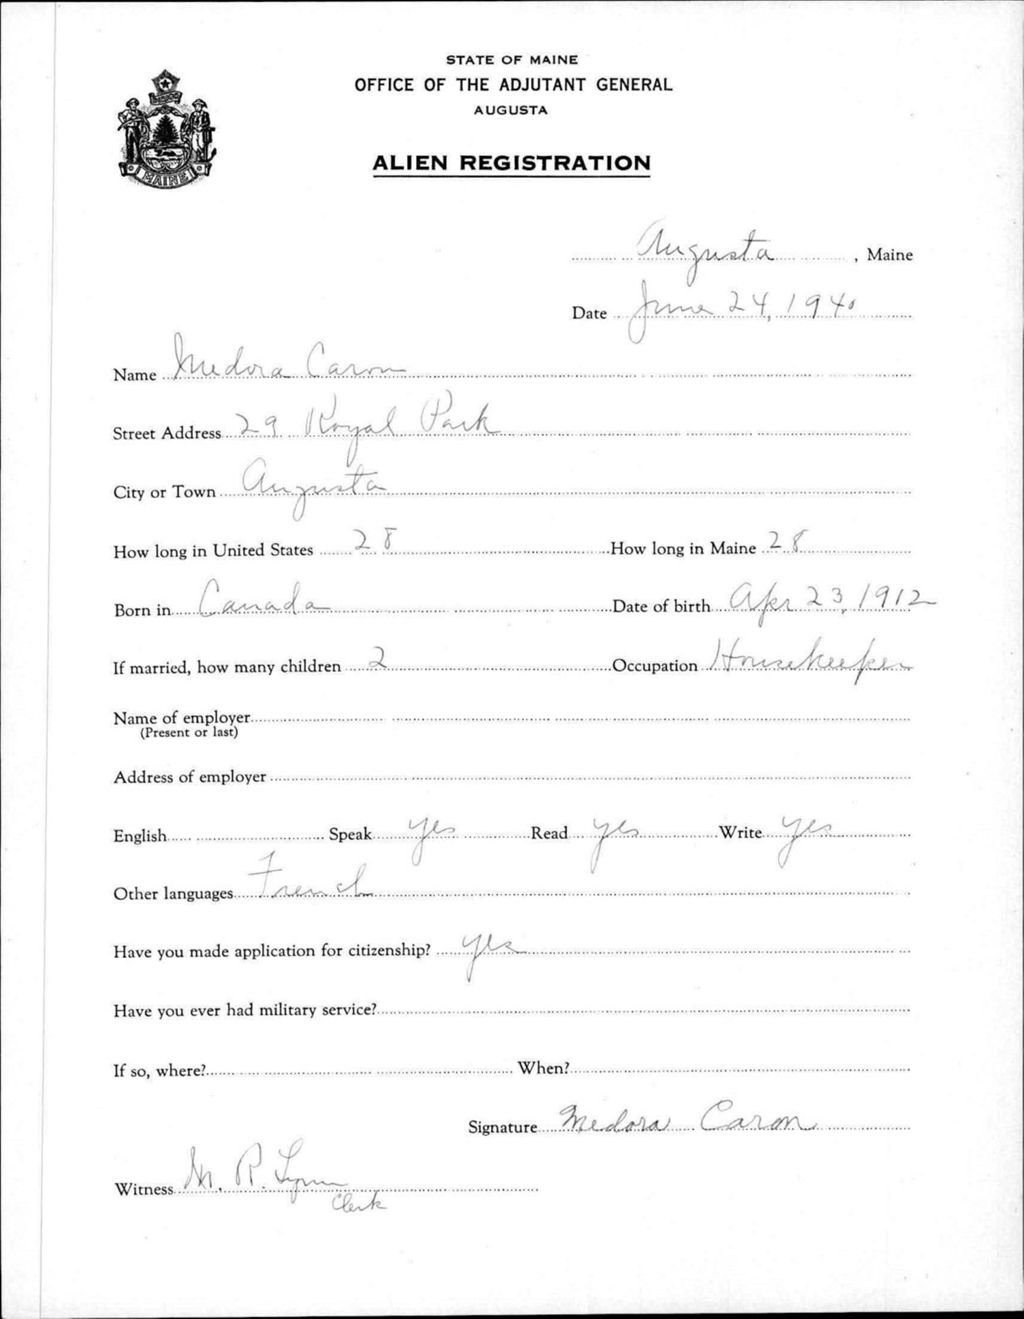 STATE OF MAINE
OFFICE OF THE ADJUTANT GENERAL
AUGUSTA
ALIEN REGISTRATION
MAINE
Augusta, Maine
Date June 24, 1940
Name Medora Caron
Street Address 29 Royal Park
City or Town Augusta
How long in United States 28 How long in Maine 28
Born in Canada Date of birth Apr 23, 1912
If married, how many children 2 Occupation Housekeeper
Name of employer
(Present or last)
Address of employer
English Speak yes Read yes Write yes
Other languages French
Have you made application for citizenship? yes
Have you ever had military service?
If so, where? When?
Signature Medora Caron
Witness M. R. Lynn
Clerk